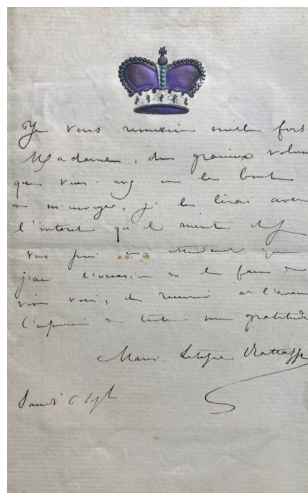 Je vous remercie mille fois
Madame, du gracieux volume
que vous avez eu la bonté
de m'envoyer, je le lirai avec
l'intérêt qu'il mérite et
vous prie en attendant que
j'aie l'occasion de le faire de
vive voix, de recevoir à l'avance
l'expression de toute ma gratitude
Marie Letizia Rattazzi
Samedi 6